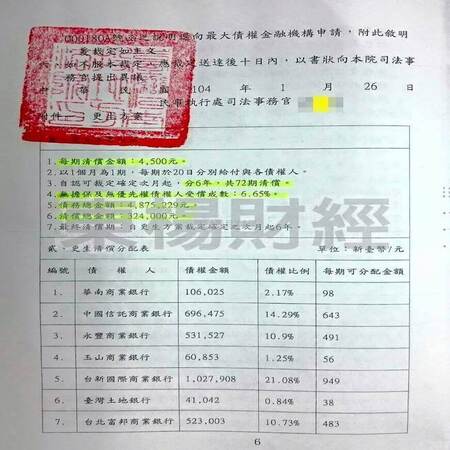 000180A號函之說明逕向最大債權金融機構申請，附此敘明
、爰裁定如主文。
、如不服本裁定，應裁定送達後十日內，以書狀向本院司法事
務官提出異議。
中 華 民 國 104 年 1 月 26 日
民事執行處司法事務官
附件： 更生方案
1.每期清償金額：4,500元。
2.以1個月為1期，每期於20日分別給付與各債權人。
3.自認可裁定確定次月起，分6年，共72期清償。
4.無擔保及無優先權債權人受償成數：6.65%。
5.債務總金額：4,875,229元。
6.清償總金額：324,000元。
7.最終清償期：自更生方案裁定確定之次月起6年。
陽財經
貳、更生清償分配表 單位：新臺幣/元
編號 債 權 人 債權金額 債權比例 每期可分配金額
1. 華南商業銀行 106,025 2.17% 98
2. 中國信託商業銀行 696,475 14.29% 643
3. 永豐商業銀行 531,527 10.9% 491
4. 玉山商業銀行 60,853 1.25% 56
5. 台新國際商業銀行 1,027,908 21.08% 949
6. 臺灣土地銀行 41,042 0.84% 38
7 台北富邦商業銀行 523,003 10.73% 483
6